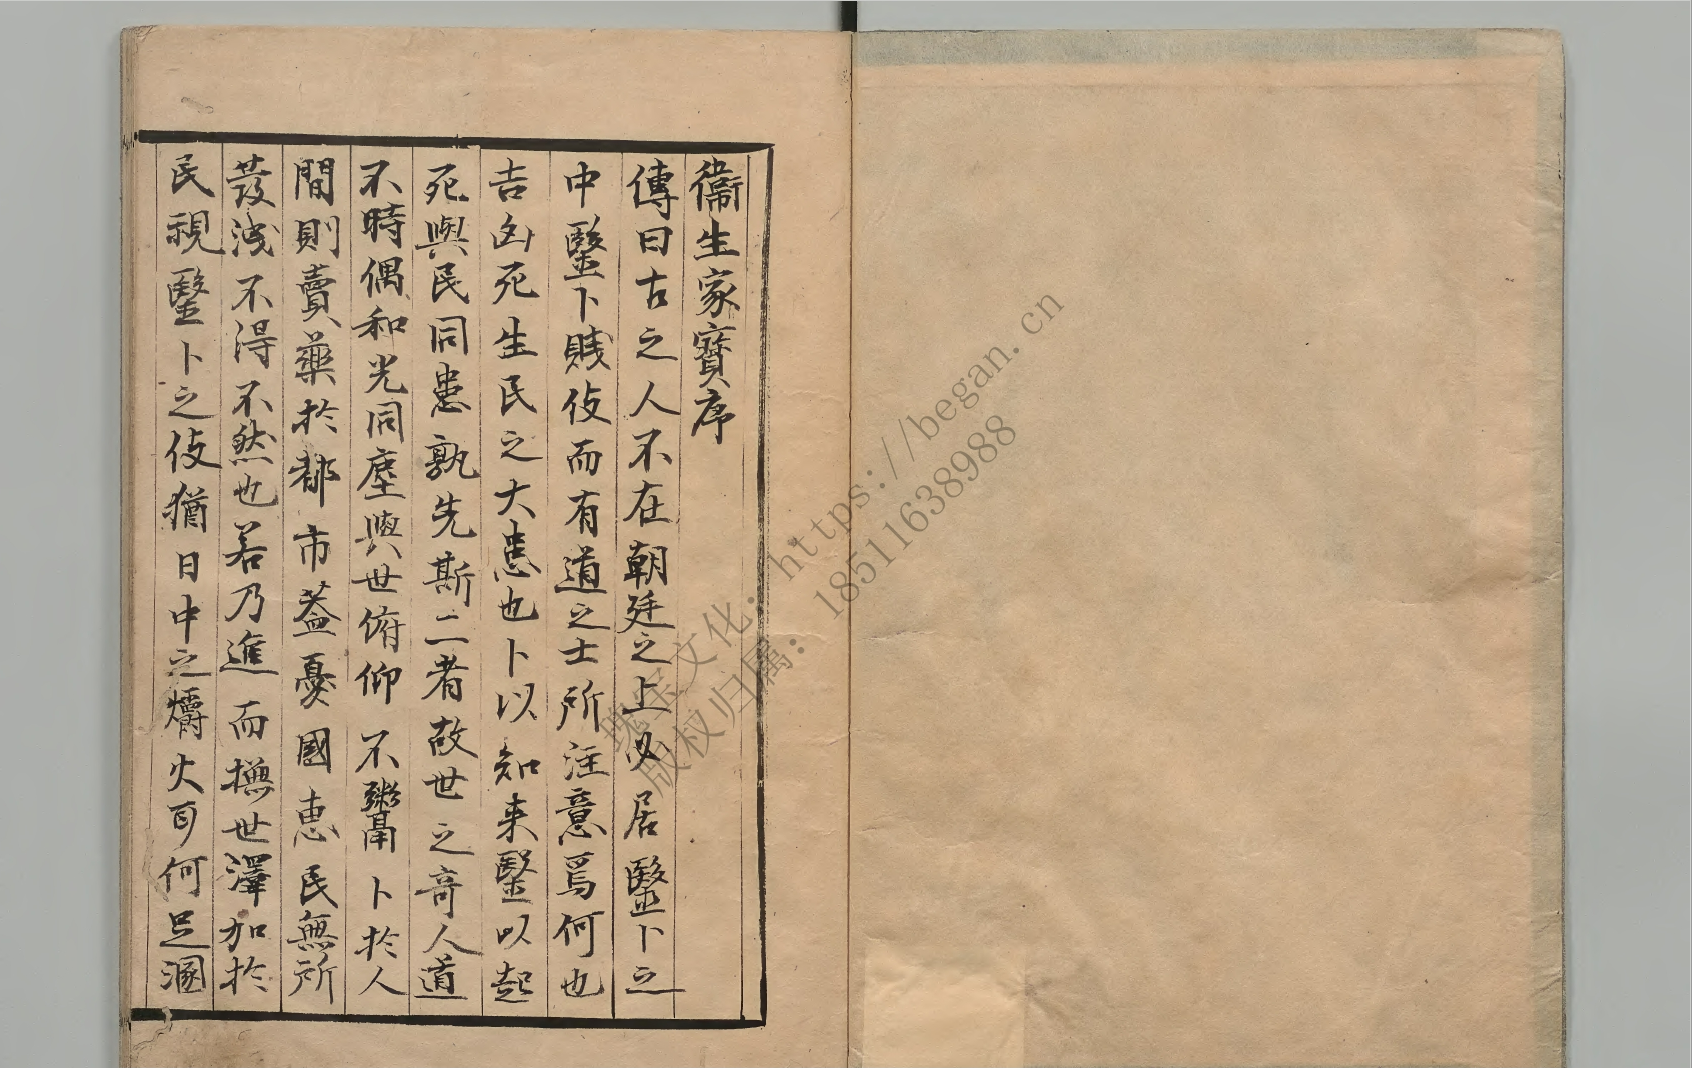 衞生家寳序
傳曰古之人不在朝廷之上必居醫卜之
中醫卜賤伎而有道之士所注意焉何也
吉凶死生民之大患也卜以知来醫以起
死與民同患孰先斯二者故世之奇人道
不時偶和光同塵與世俯仰不鬻卜於人
間則賣藥於都市盖憂國恵民無所
發洩不得不然也若乃進而撫世澤加於
民視醫卜之伎猶日中之爝火耳何足溷
瑰宝文化：https://began.cn
版权归属：18511638988